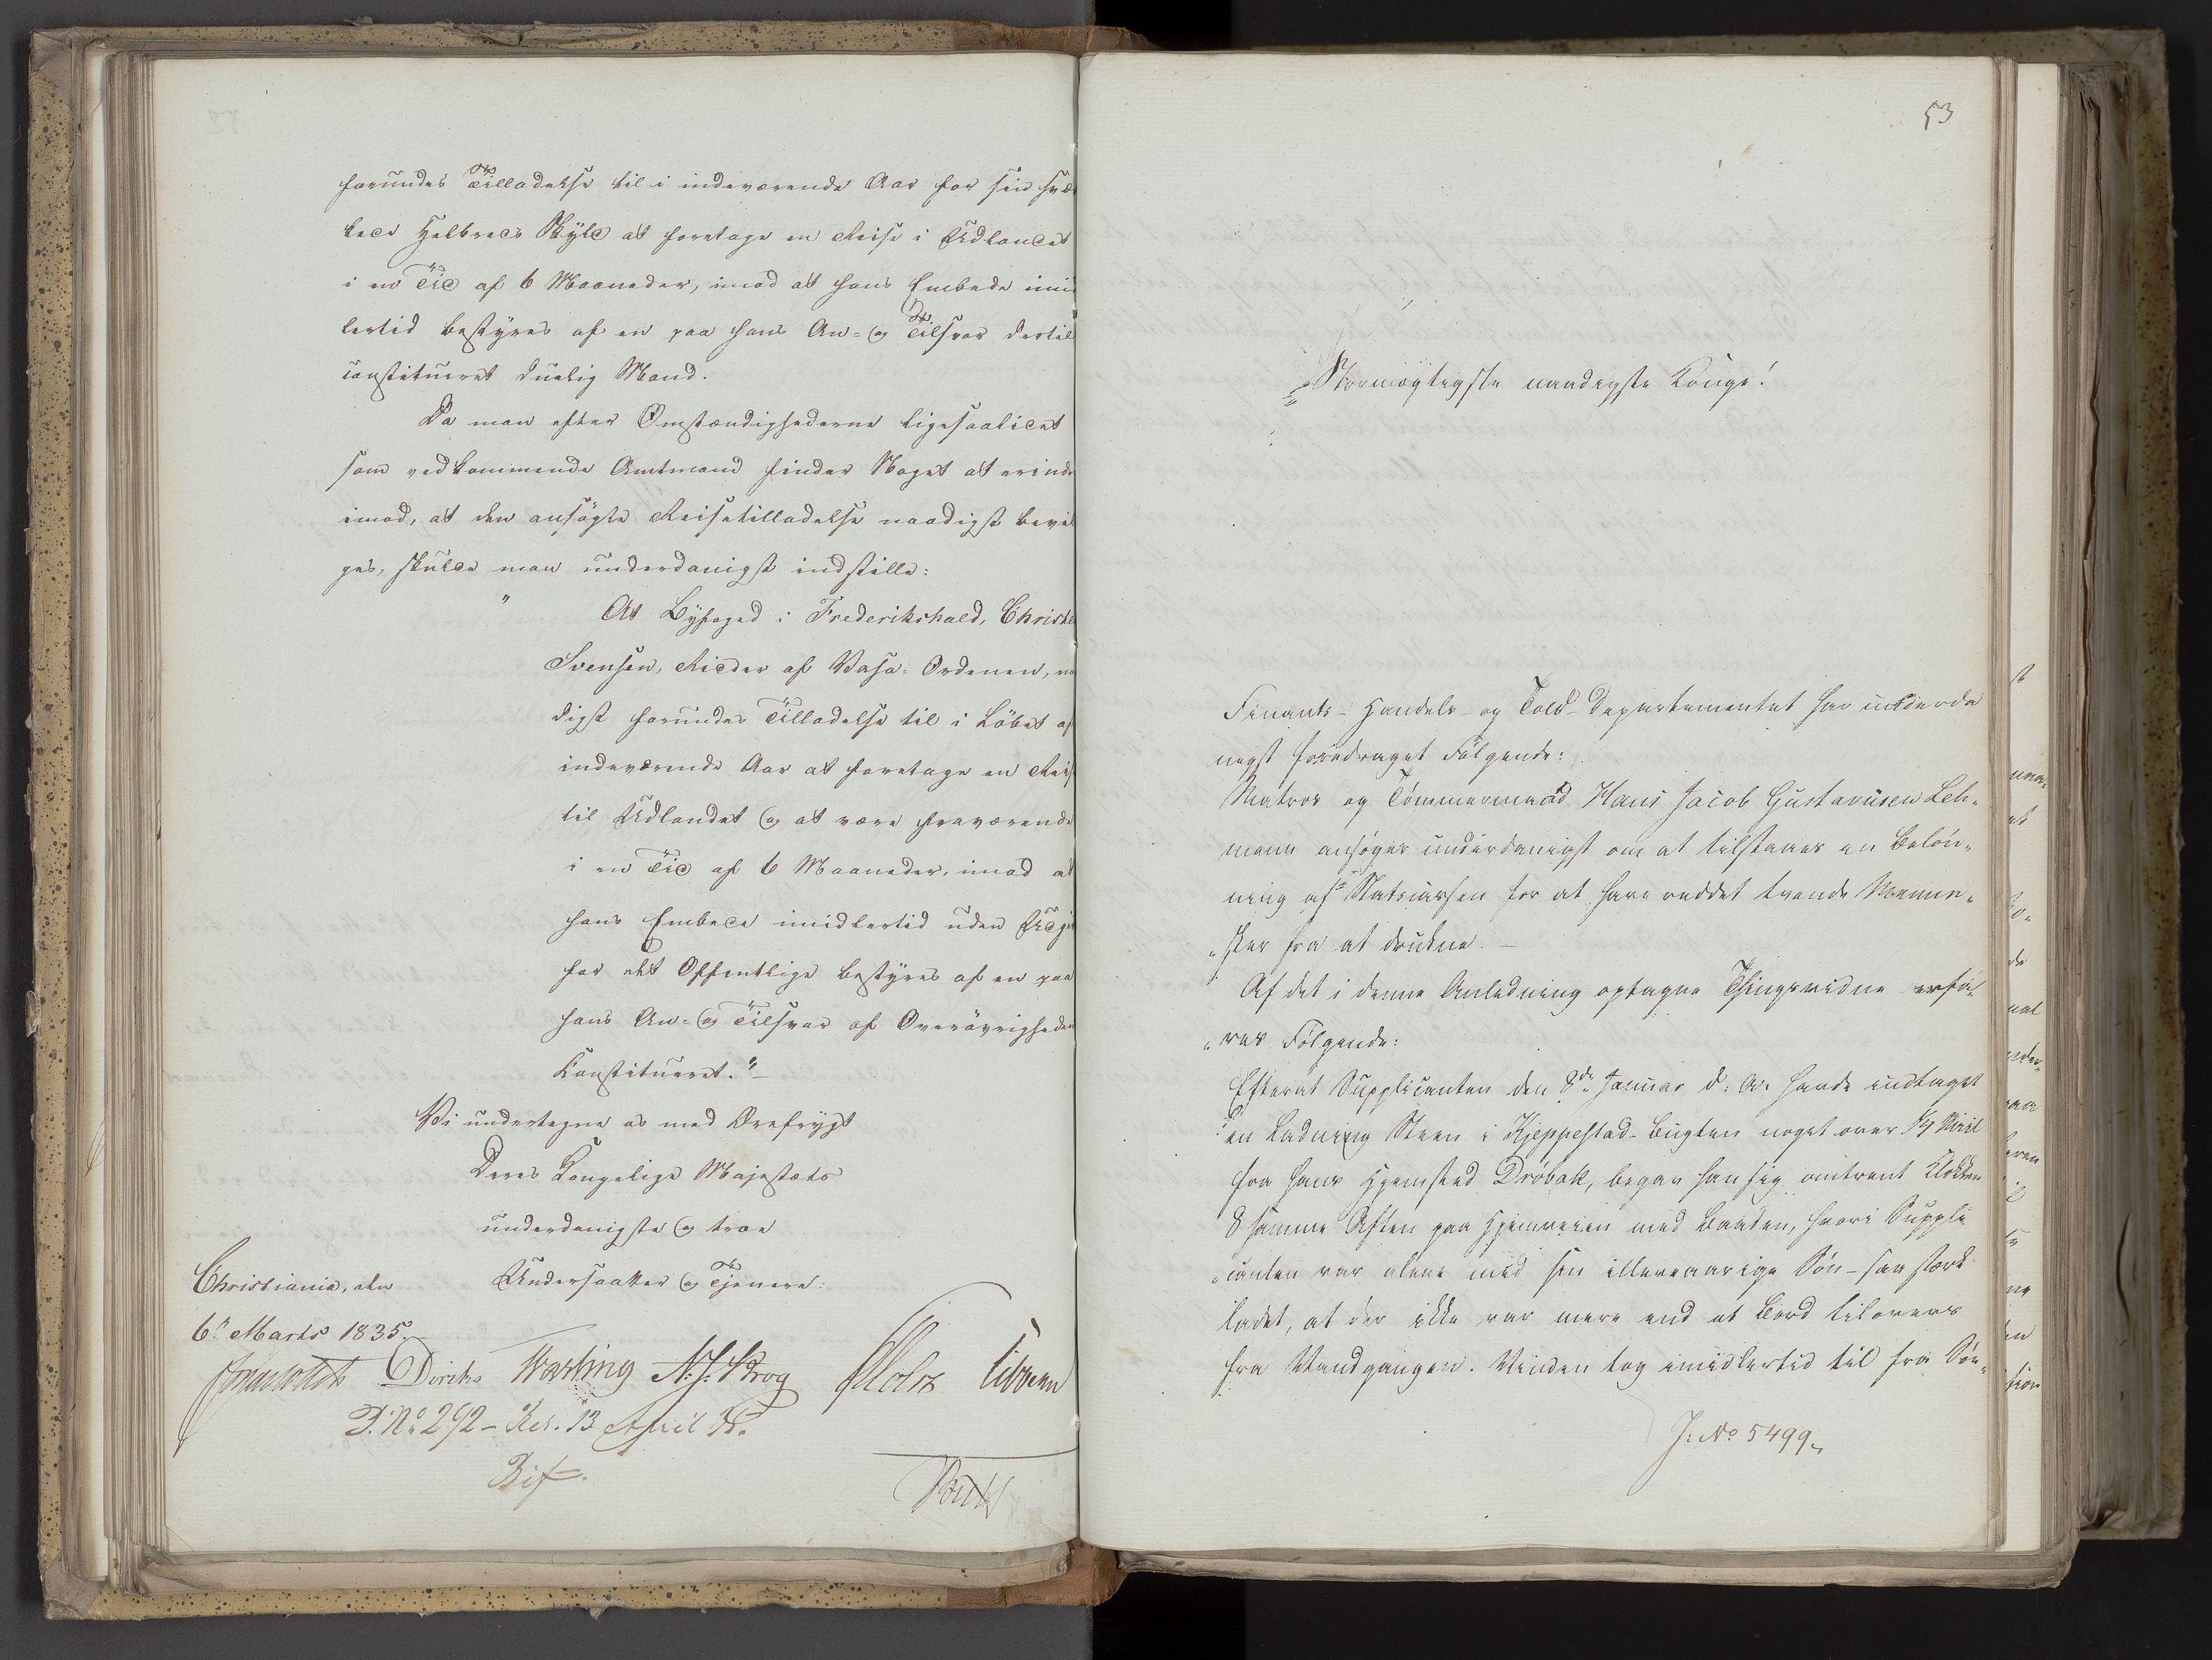 forundes Tilladelse til i indeværende Aar for sin svæk
kede Helbreds Skyld at foretage en Reise i Udlandet
i en Tid af 6 Maaneder, imod at hans Embede imid
lertid bestyres af en paa hans An- og Tilsvar dertil
constitueret duelig Mand.
Da man efter Omstændighederne ligesaalidet
som vedkommende Amtmand finder Noget at erindr
imod, at den ansøgte Reisetilladelse naadigst bevil
ges, skulde man underdanigst indstille:
" At Byfoged i Frederikshald, Christ
Svensen, Ridder af Vasa-Ordenen, na
digst forundes Tilladelse til i Löbet af
indeværende Aar at foretage en Reis
til Udlandet og at være fraværende
i en Tid af 6 Maaneder, imod at
hans Embede imidlertid uden Udgi
for det Offentlige bestyres af en paa
hans An- og Tilsvar af Overövrigheden
Constitueret."
Vi undertegne os med Ærefrygt
Deres Kongelige Majestæts
underdanigste og troe
Undersaatter og Tjenere:
Christiania, den
6te Marts 1835.
Diriks Vogt N. J. Krog Holst
P. No. 292 - Res. 13 April 35.
53
Stormægtigste naadigste Konge!
Finants- Handels- og Told-Departementet har underda
nigst foredraget Fölgende:
Matros og Tömmermand Hans Jacob Gustavusen Leh-
mann ansøger underdanigst om at tilstaaes en Belön-
ning af Statscassen for at have reddet tvende Menne-
"sker fra at drukne. -
Af det i denne Anledning optagne Thingsvidne erfa-
"res Følgende:
Efterat Supplicanten den 8de Januar d: A: havde indtaget
en Ladning Steen i Kjeppestad-Bugten noget over 1/4 Miil
fra hans Hjemsted Dröbak, begav han sig omtrent Klokken
8 samme Aften paa Hjemveien med Baaden, hvori Suppli
"canten var alene med sin elleveaarige Sön - saa stærkt
ladet, at der ikke var mere end et Bord tilovers
fra Vandgangen. Vinden tog imidlertid til fra Sön-
J: No 5499.